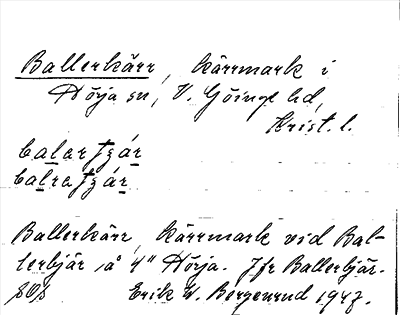 Ballerkärr, kärrmark i
Hörja sn, V. Göinge hd,
Krist. l.
balartzár
balratzár
Ballerkärr, kärrmark vid Bal-
lerbjär, å 4" Hörja. Jfr Ballerbjär.
Erik W. Bergenrud 1947.